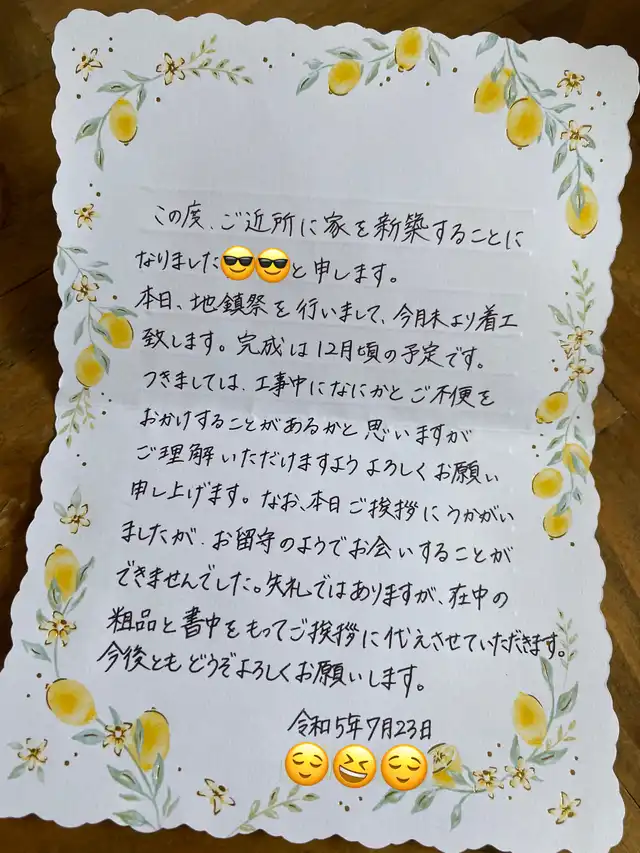 この度、ご近所に家を新築することに
なりました😎😎と申します。
本日、地鎮祭を行いまして、今月末より着工
致します。完成は12月頃の予定です。
つきましては、工事中になにかとご不便を
おかけすることがあるかと思いますが
ご理解いただけますようよろしくお願い
申し上げます。なお、本日ご挨拶にうかがい
ましたが、お留守のようでお会いすることが
できませんでした。失礼ではありますが、在中の
粗品と書中をもってご挨拶に代えさせていただきます。
今後ともどうぞよろしくお願いします。
令和5年7月23日
😌😆😌